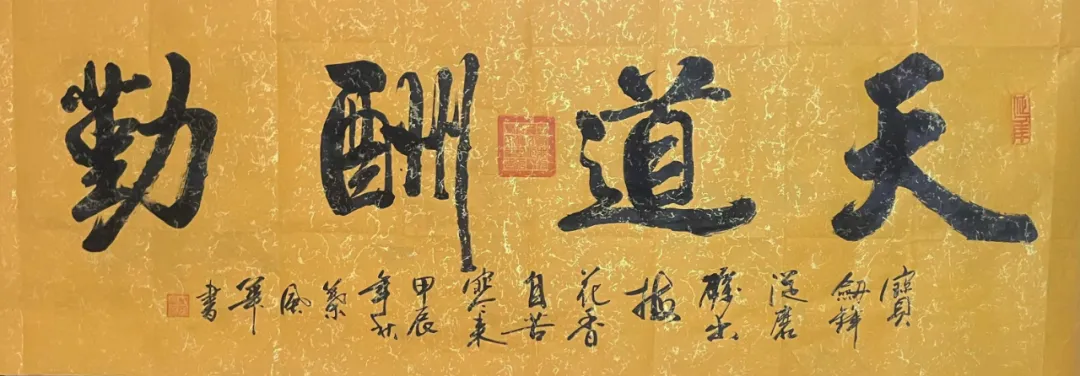 天道酬勤
寶
劍鋒
從磨
礪出
梅
花香
自苦
寒來
甲辰
年秋
風
軍
書